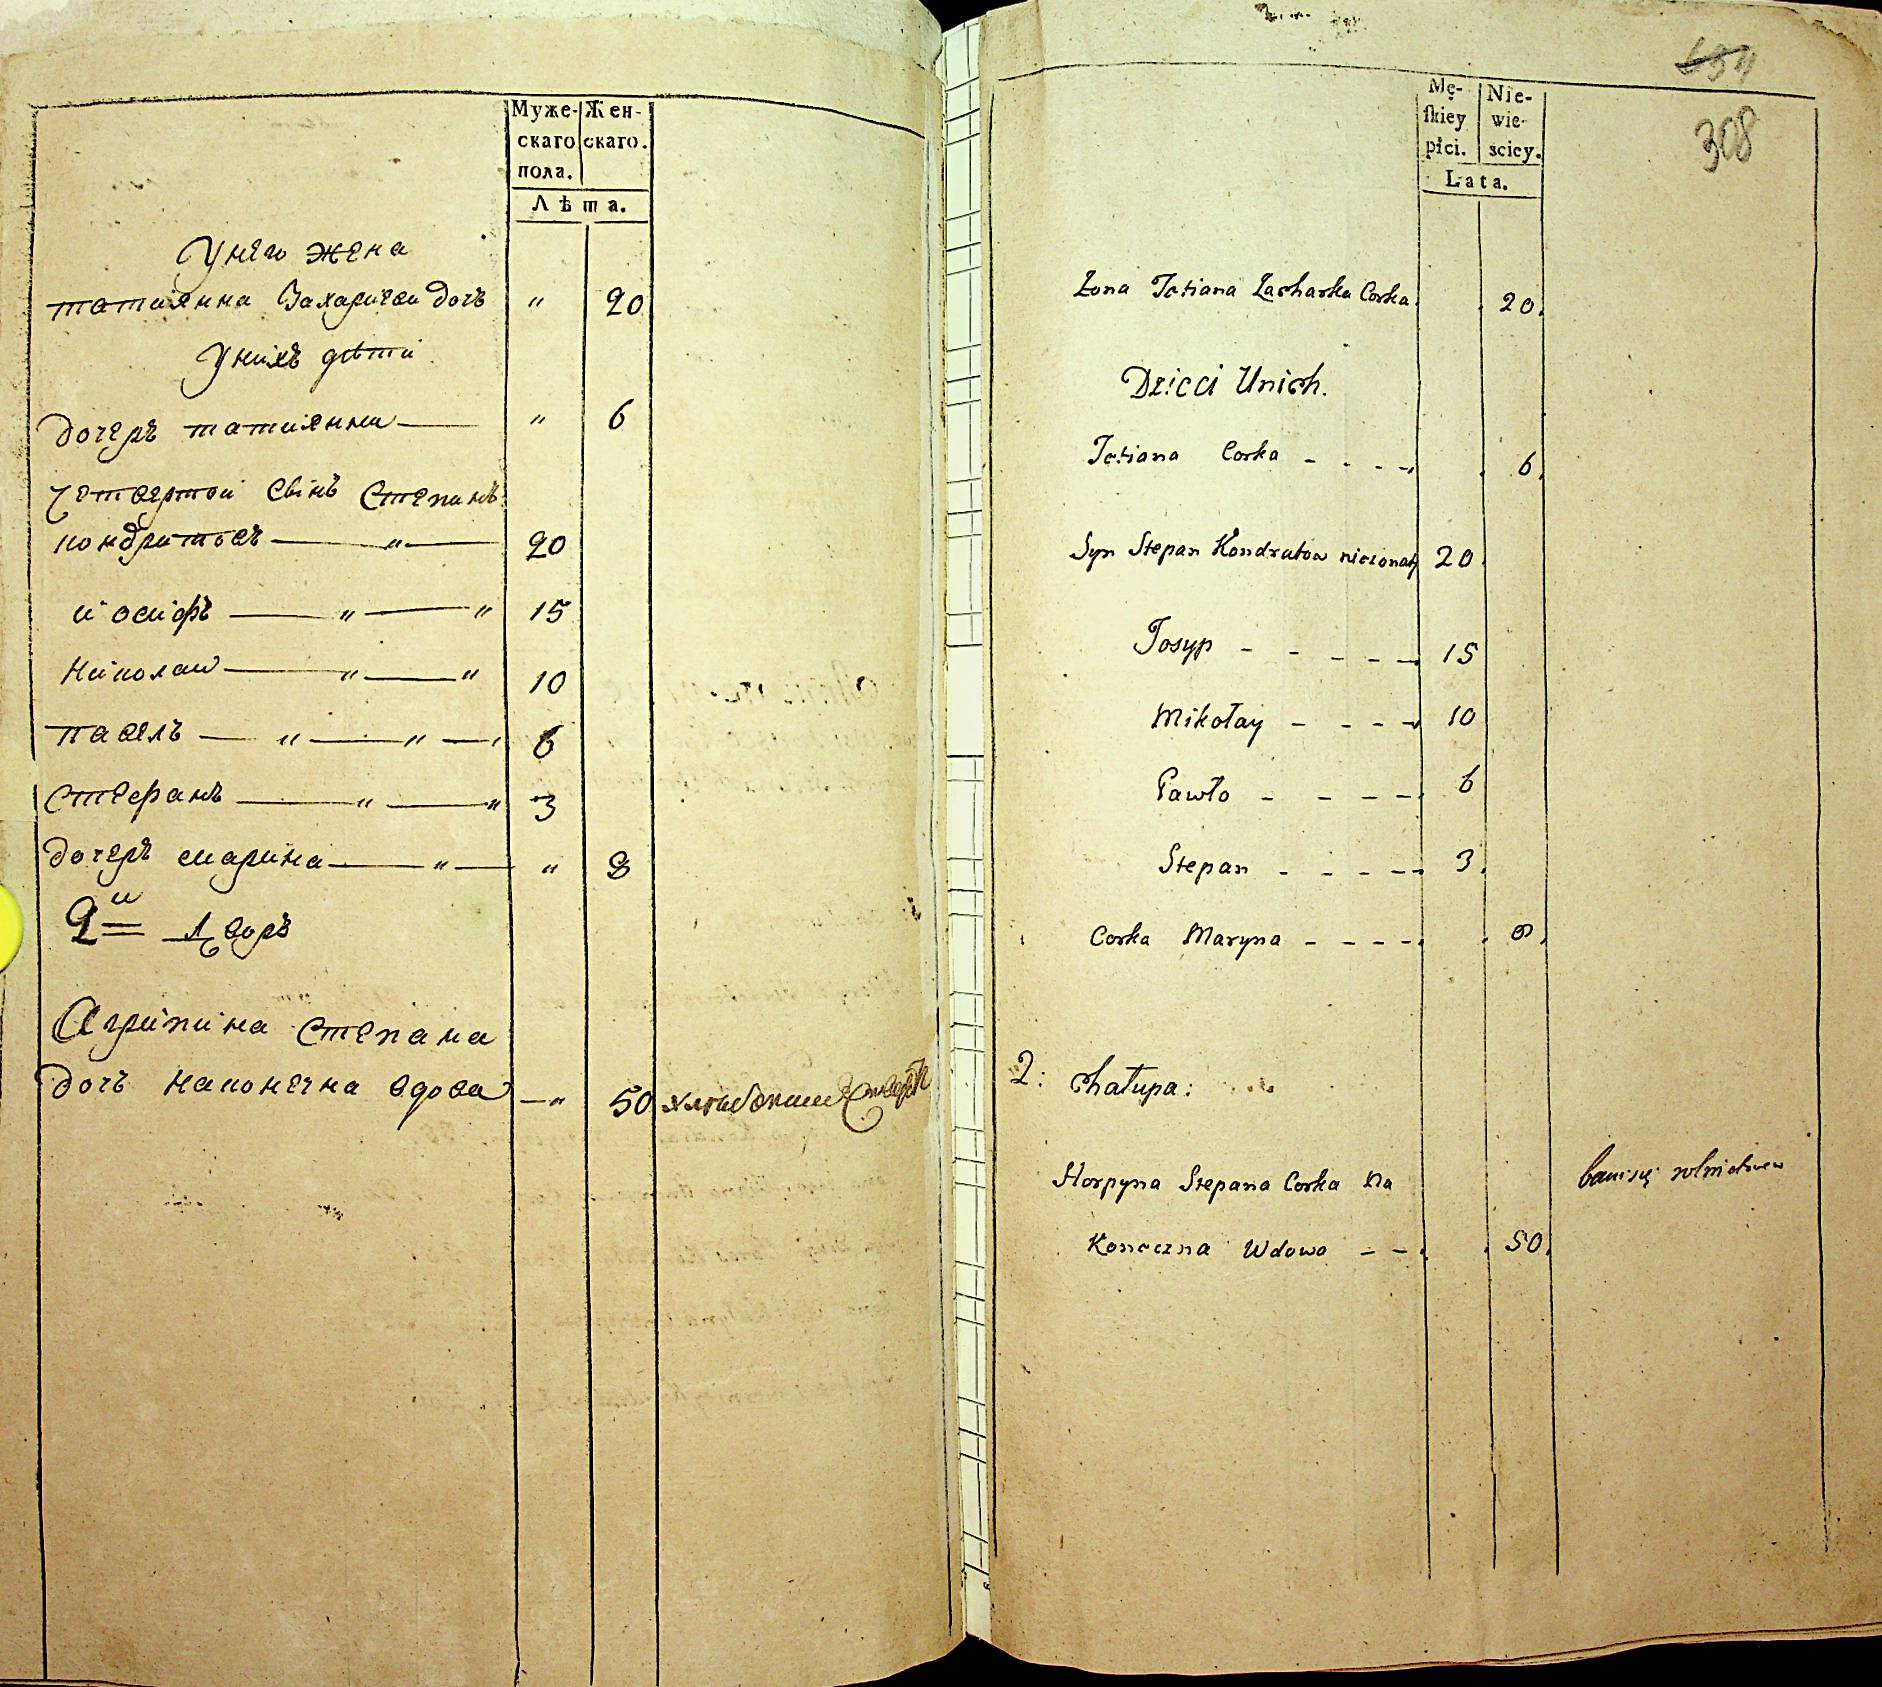 Муже- Жен-
скаго скаго.
пола.
Лѣта.
У него жена
татиянна Захариева дочь " 20
У нихъ дѣти
дочеръ татиянна " 6
Четвертой сынъ Степанъ
кондратовъ " 20
иосифъ " " 15
Николаи " " 10
павелъ " " 6
стефанъ " " 3
дочеръ марина " " 8
2й Дворъ
Агрипина степана
дочь наконечна вдова " 50
654
308
Mę- Nie-
skiey wie-
płci. sciey.
Lata.
Żona Tatiana Zacharka Corka 20.
Dzieci Unich.
Tatiana Corka 6.
Syn Stepan Kondratow niezonaty 20.
Josyp 15
Mikołay 10
Pawło 6
Stepan 3.
Corka Maryna 8.
2: Chałupa:
Horpyna Stepana Corka Na
bawi się rolnictwem
Koneczna Wdowa 50.